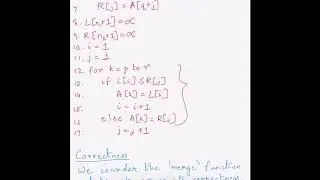 7. R[j] = A[q+j]
8. L[n1+1] = ∝
9. R[n2+1] = ∝
10. i = 1
11. j = 1
12. for k = p to r
13. if L[i] ≤ R[j]
14. A[k] = L[i]
15. i = i+1
16. else A[k] = R[j]
17. j = j+1
Correctness
We consider the 'merge' function
correctness